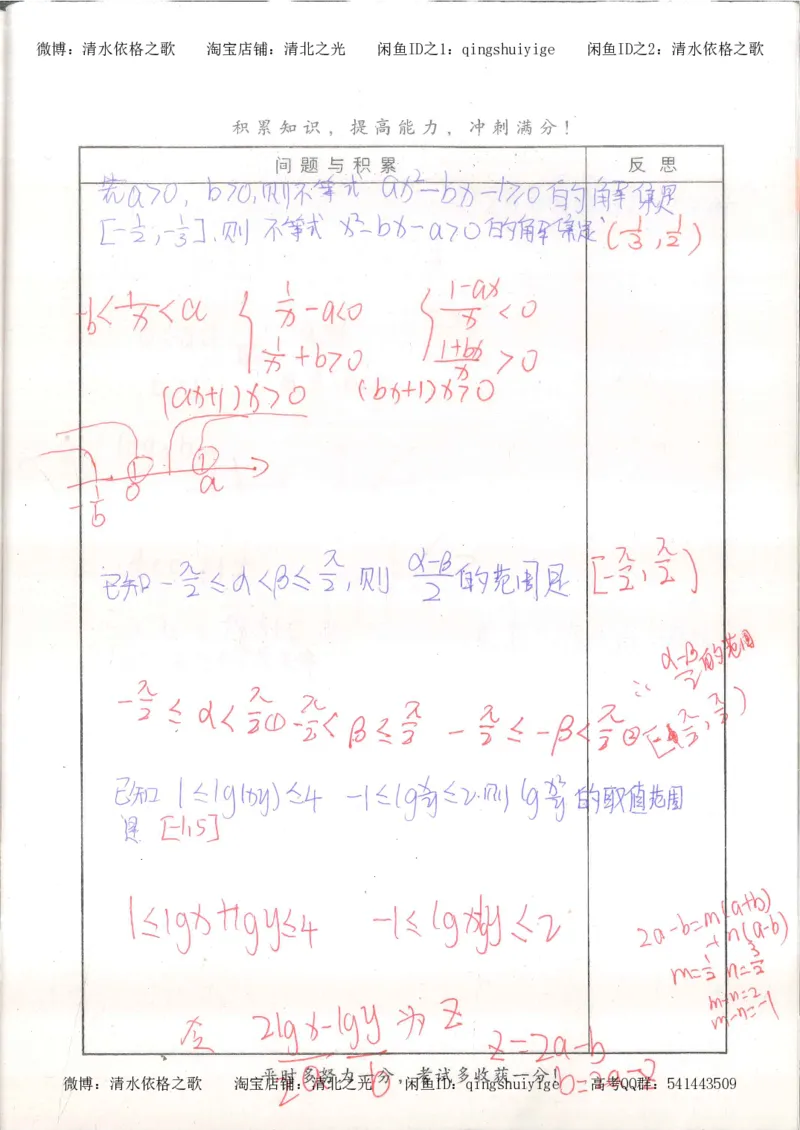 微博：清水依格之歌 淘宝店铺：清北之光 闲鱼ID之1：qingshuiyige 闲鱼ID之2：清水依格之歌
积累知识，提高能力，冲刺满分！
问题与积累 反思
若a>0，b>0，则不等式 ax²-bx-1≥0的解集是
[-1/2,-1/3]，则 不等式 x²-bx-a>0的解集是 (1/3,1/2)
-b<1/x<a { 1/x-a<0 { (1-ax)/x<0
1/x+b>0 (1+bx)/x>0
(ax+1)x>0 (bx+1)x>0
① ②
-1/b 0 a
已知-π/2≤α<β≤π/2，则 (α-β)/2的范围是 [-π/2,π/2)
∵ (α-β)/2的范围
-π/2≤α<π/2① -π/2<β≤π/2 -π/2≤-β<π/2② [-π/2,π/2)
已知 1≤lg(xy)≤4 -1≤lg x/y≤2，则 lg x²/y 的取值范围
是 [-1,5]
1≤lgx+lgy≤4 -1≤lgx-lgy≤2
2a-b=m(a+b)
+n(a-b)
m=1/2 n=3/2
m+n=2
m-n=-1
令 2lgx-lgy 为 z
z=2a-b
2a b b=2a-z
平时多努力一分，考试多收获一分！
微博：清水依格之歌 淘宝店铺：清北之光 闲鱼ID之1：qingshuiyige 高考QQ群：541443509